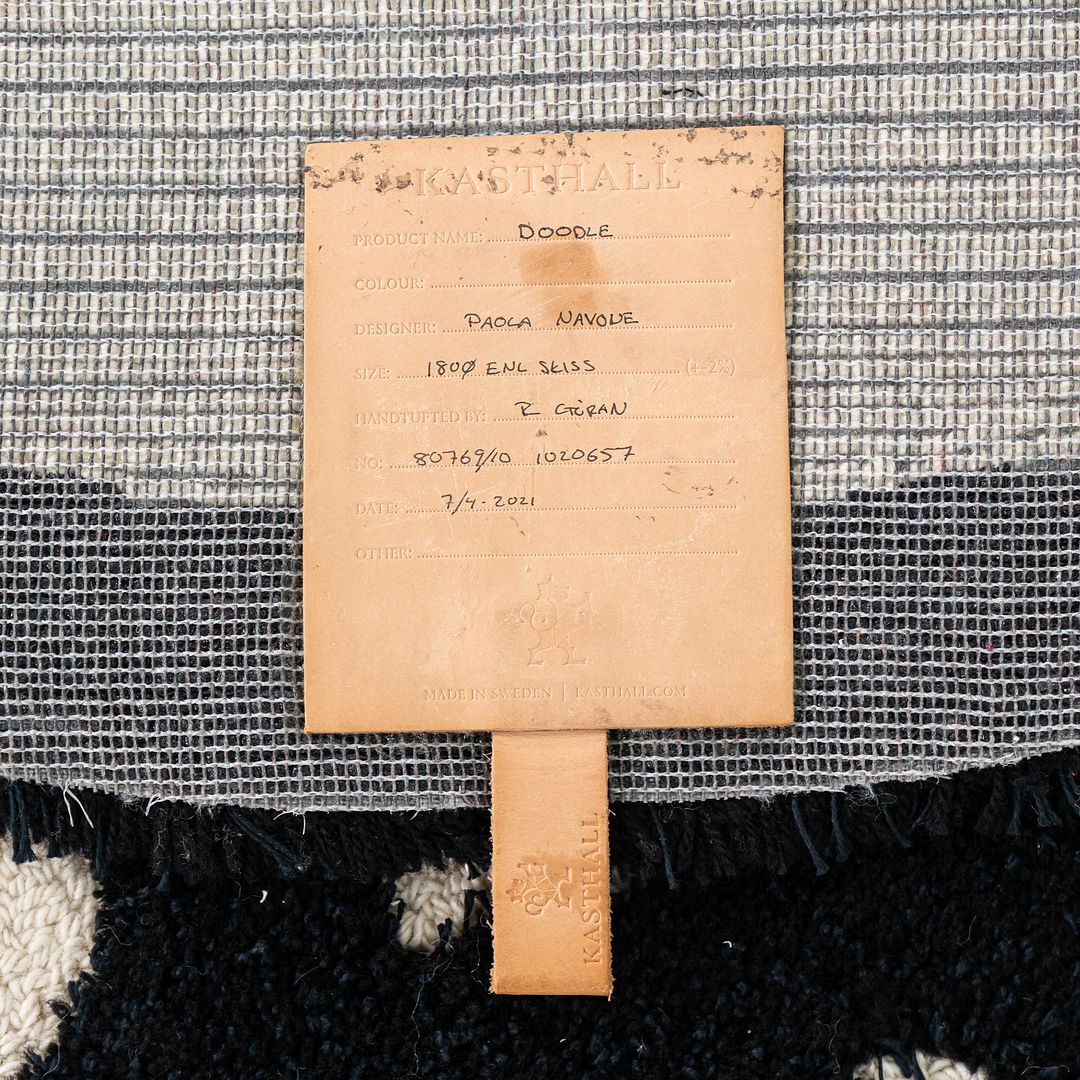 KASTHALL
PRODUCT NAME: DOODLE
COLOUR:
DESIGNER: PAOLA NAVONE
SIZE: 180Ø ENL SKISS (+-2%)
HANDTUFTED BY: R GÖRAN
NO: 80769/10 1020657
DATE: 7/4-2021
OTHER:
MADE IN SWEDEN | KASTHALL.COM
KASTHALL